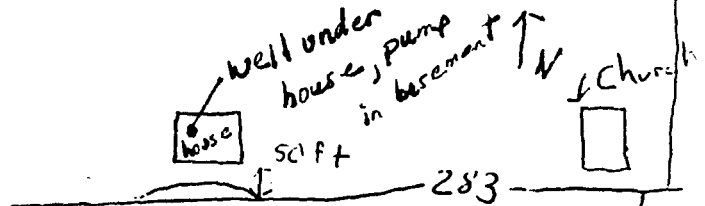 well under
house, pump
in basement
N
Church
house
50 ft
283